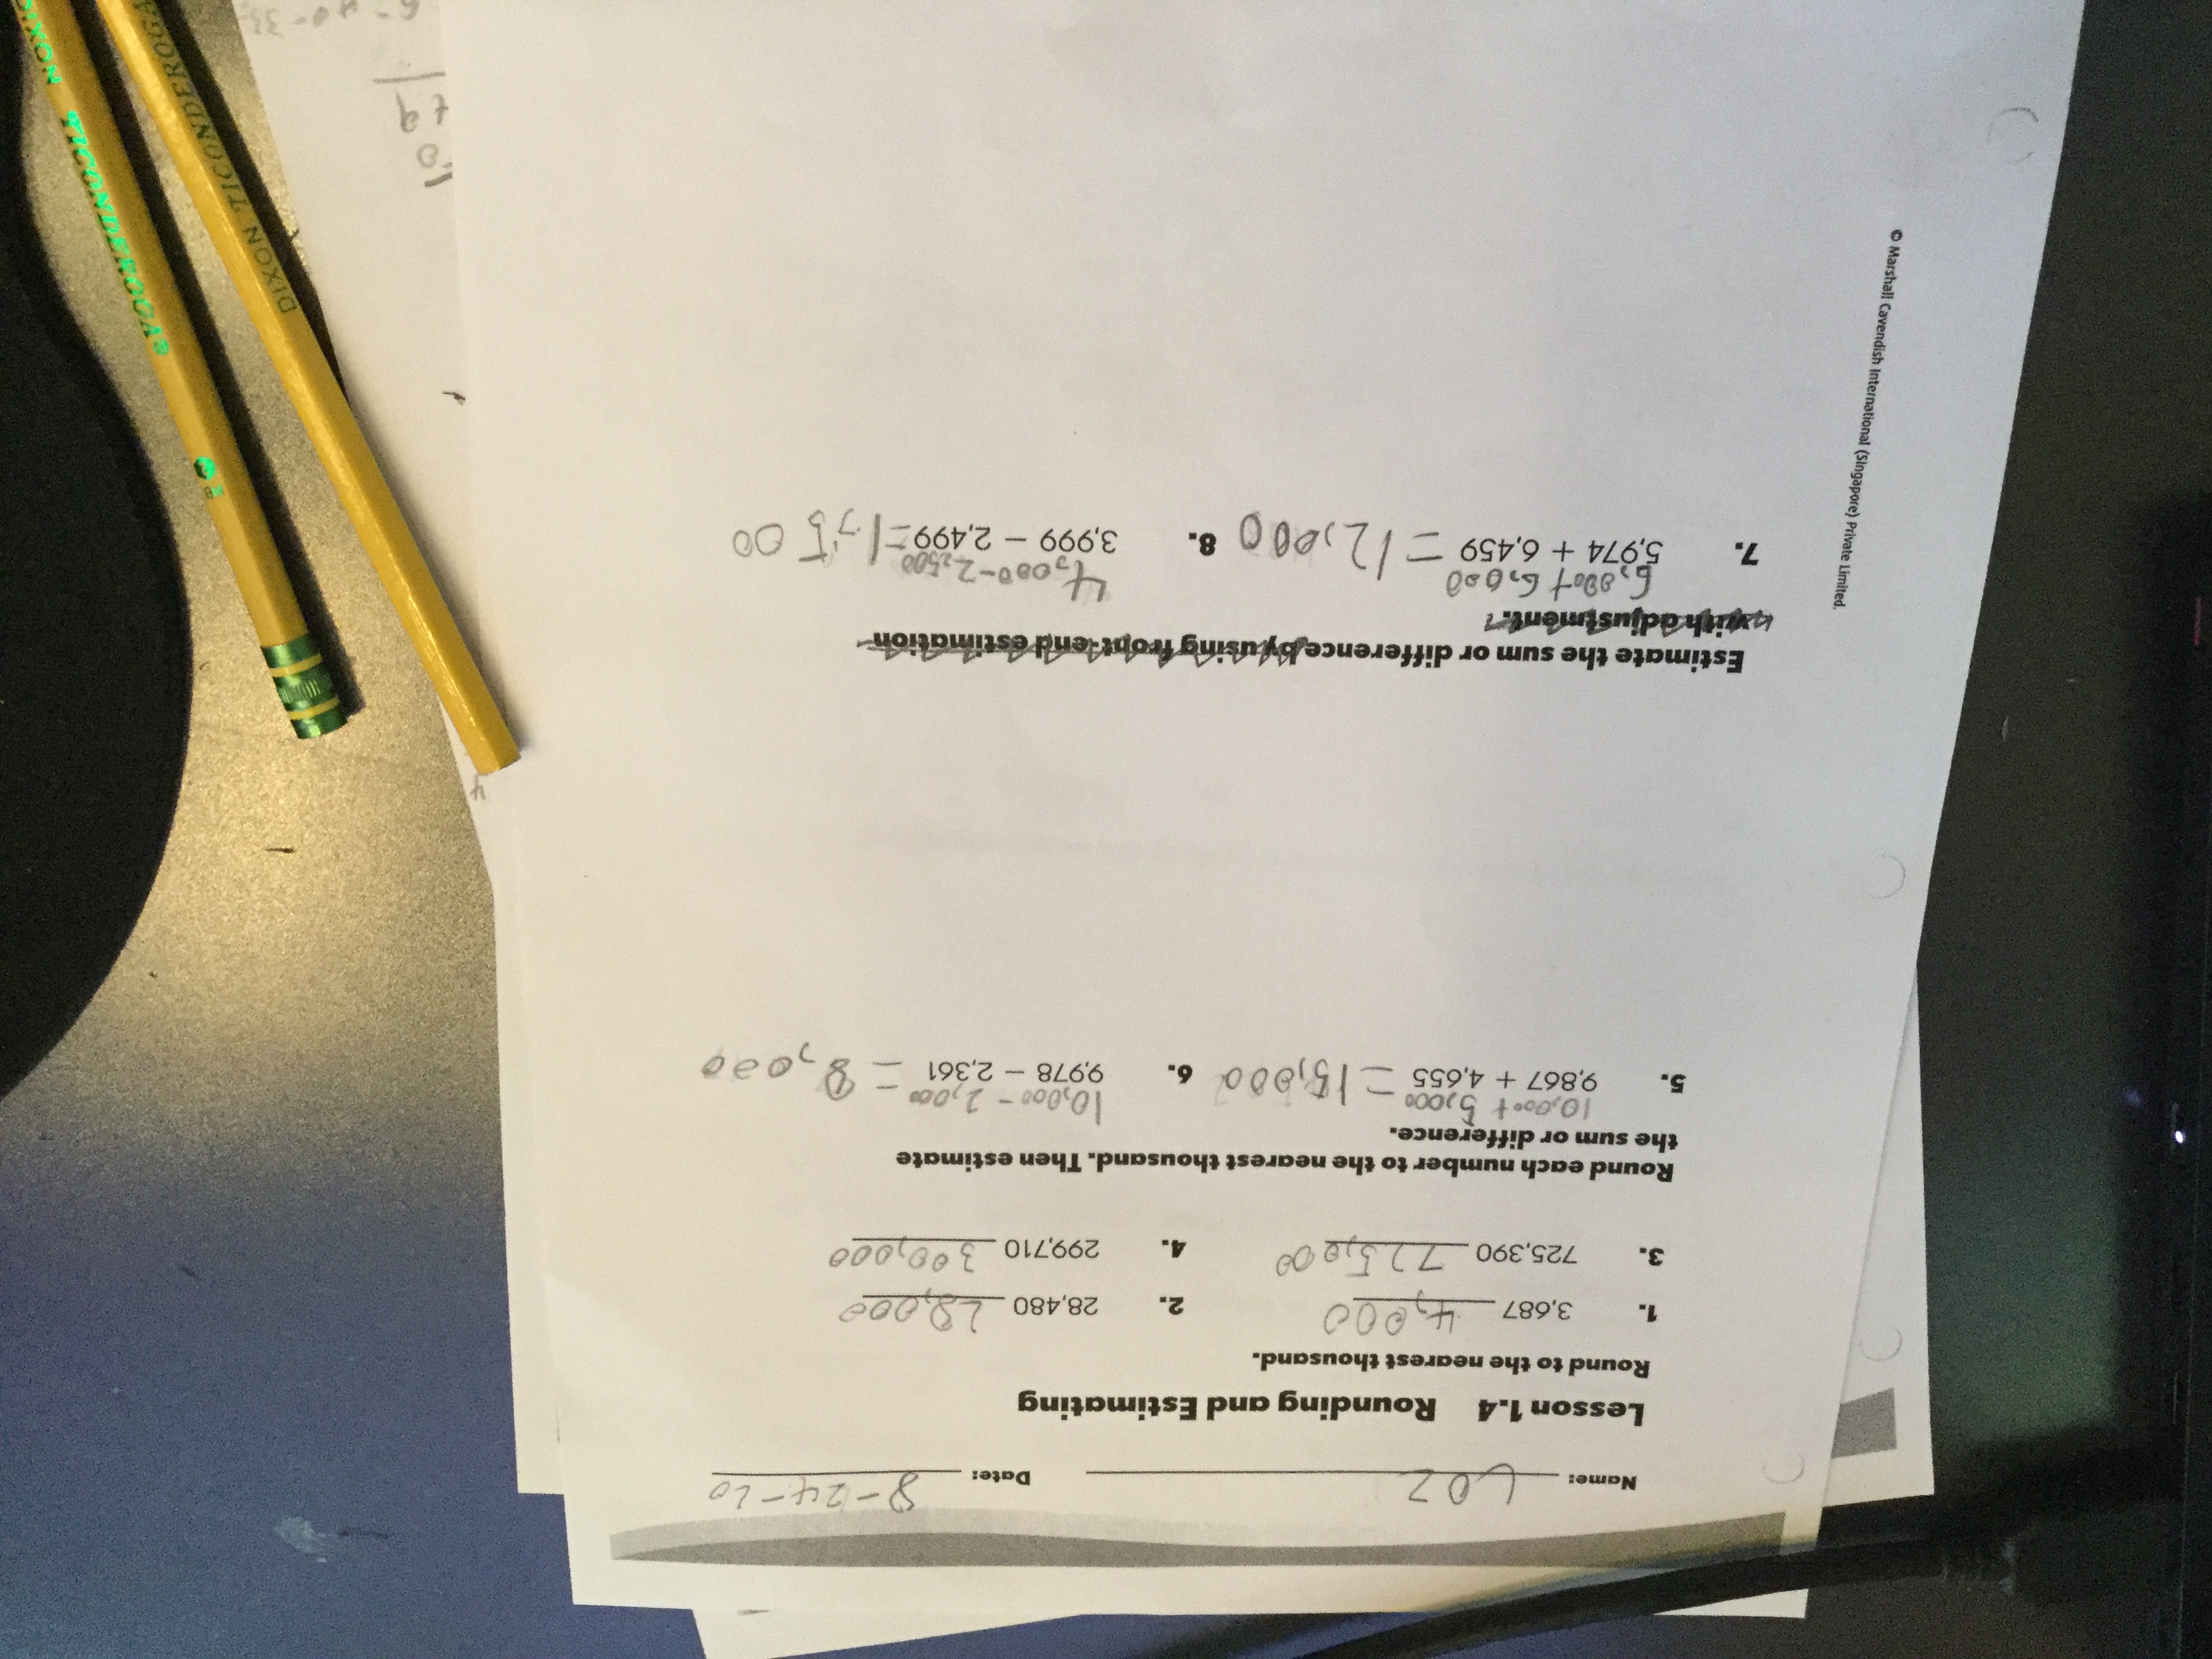 Name: LOZ Date: 8-24-20
Lesson 1.4 Rounding and Estimating
Round to the nearest thousand.
1. 3,687 4,000 2. 28,480 28,000
3. 725,390 725,000 4. 299,710 300,000
Round each number to the nearest thousand. Then estimate
the sum or difference.
10,000 + 5,000 10,000 - 2,000
5. 9,867 + 4,655 = 15,000 6. 9,978 − 2,361 = 8,000
Estimate the sum or difference by using front-end estimation
with adjustment.
6,000 + 6,000 4,000 - 2,500
7. 5,974 + 6,459 = 12,000 8. 3,999 − 2,499 = 1,500
© Marshall Cavendish International (Singapore) Private Limited.
4
DIXON TICONDEROGA
TICONDEROGA
DIXON
+9